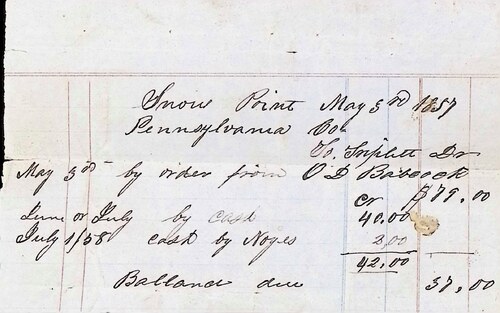 Snow Point May 3rd 1857
Pennsylvania Co
To Triplett Dr
May 3rd by order from O D Babcock $79.00
Cr
June or July by cash 40.00
July 1/58 cash by Noyes 2.00
42.00
Balland due 37.00